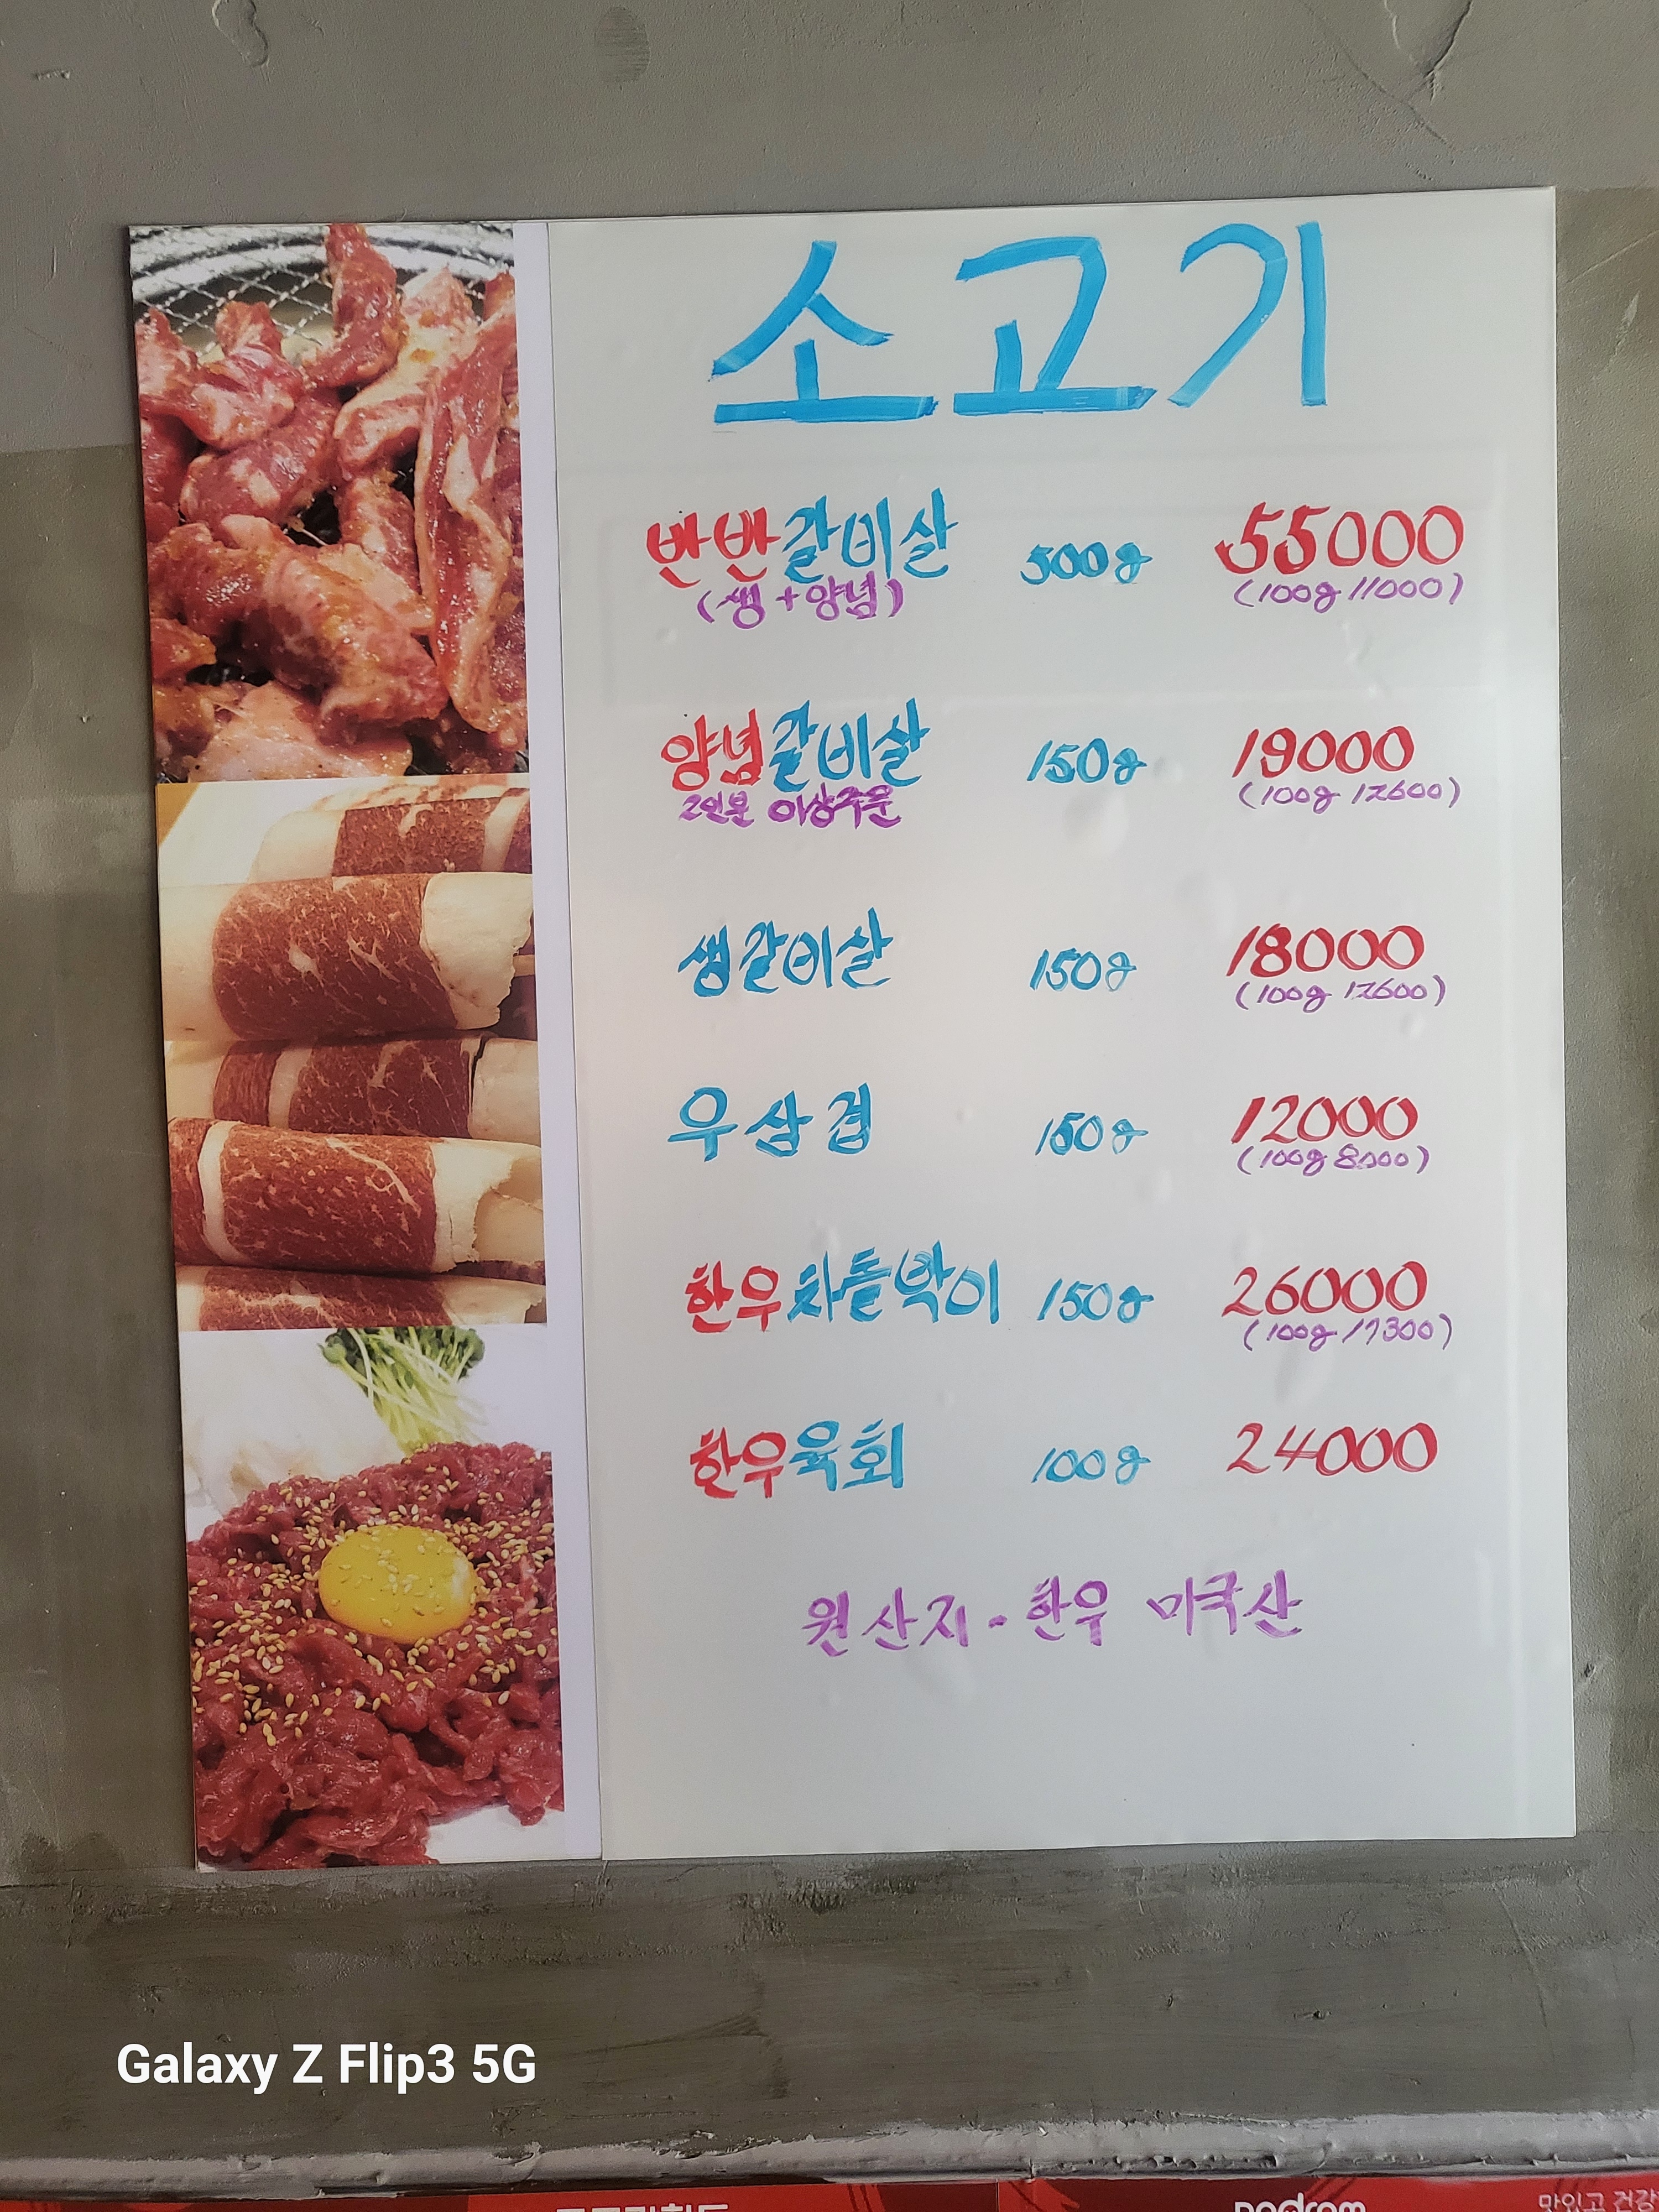 소고기
반반갈비살 500g 55000
(생+양념) (100g 11000)
양념갈비살 150g 19000
2인분 이상주문 (100g 12600)
생갈비살 150g 18000
(100g 12600)
우삼겹 150g 12000
(100g 8000)
한우차돌박이 150g 26000
(100g 17300)
한우육회 100g 24000
원산지-한우 미국산
Galaxy Z Flip3 5G
맛있고 건강